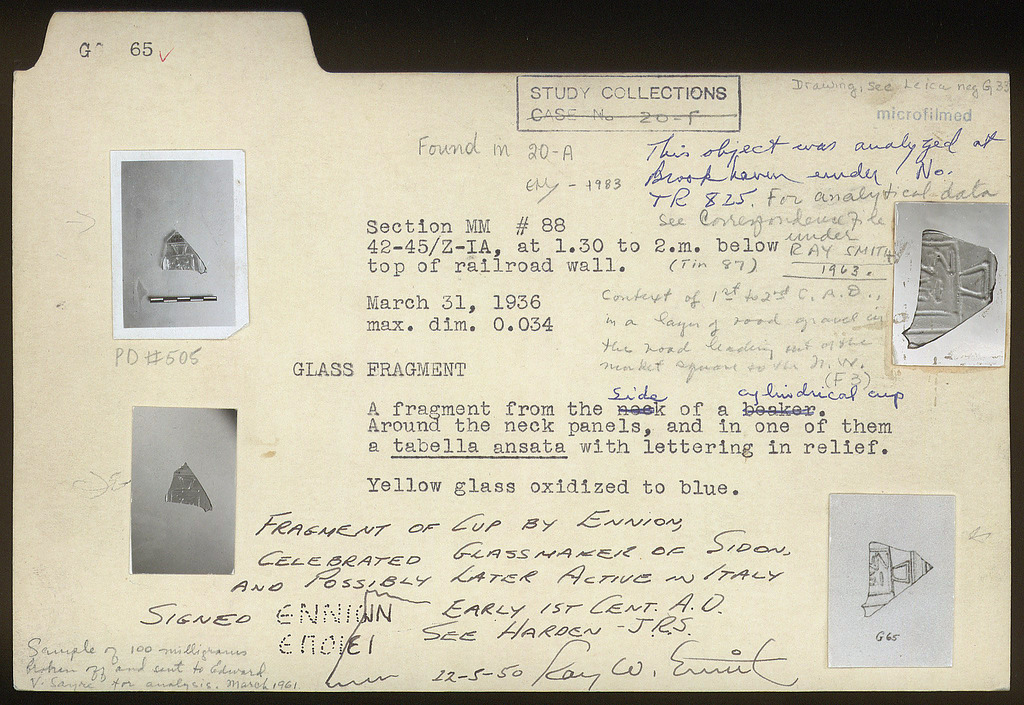 G 65 ✓
Drawing, see Leica neg G, 33
microfilmed
STUDY COLLECTIONS
CASE No 20-F
Found in 20-A
1983
This object was analyzed at
Brookhaven under No.
TR 825. For analytical data
see Correspondence File
under
RAY SMITH
1963.
Section MM # 88
42-45/Z-IA, at 1.30 to 2.m. below
top of railroad wall.
(Tin 87)
March 31, 1936
max. dim. 0.034
Context of 1st to 2nd C. A.D.,
in a layer of road gravel
the road leading out of the
market square to the N.W.
(F 3)
PD #505
GLASS FRAGMENT
side cylindrical cup
A fragment from the neck of a beaker.
Around the neck panels, and in one of them
a tabella ansata with lettering in relief.
Yellow glass oxidized to blue.
FRAGMENT OF CUP BY ENNION,
CELEBRATED GLASSMAKER OF SIDON,
AND POSSIBLY LATER ACTIVE IN ITALY
SIGNED ЄNNIѠN EARLY 1ST CENT. A.D.
ЄΠΟΙЄΙ SEE HARDEN - J.R.S.
22-5-50 Ray W. Smith
Sample of 100 milligrams
broken off and sent to Edward
V. Sayre for analysis. March 1961.
G65